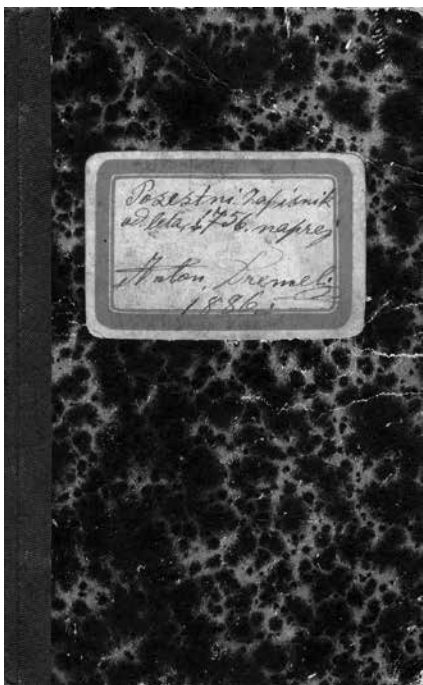 Posestni Zapisnik
od leta 1756. naprej
Anton Dremelj
1886.